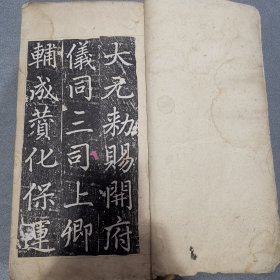 大元勑賜開府
儀同三司上卿
輔成賛化保運